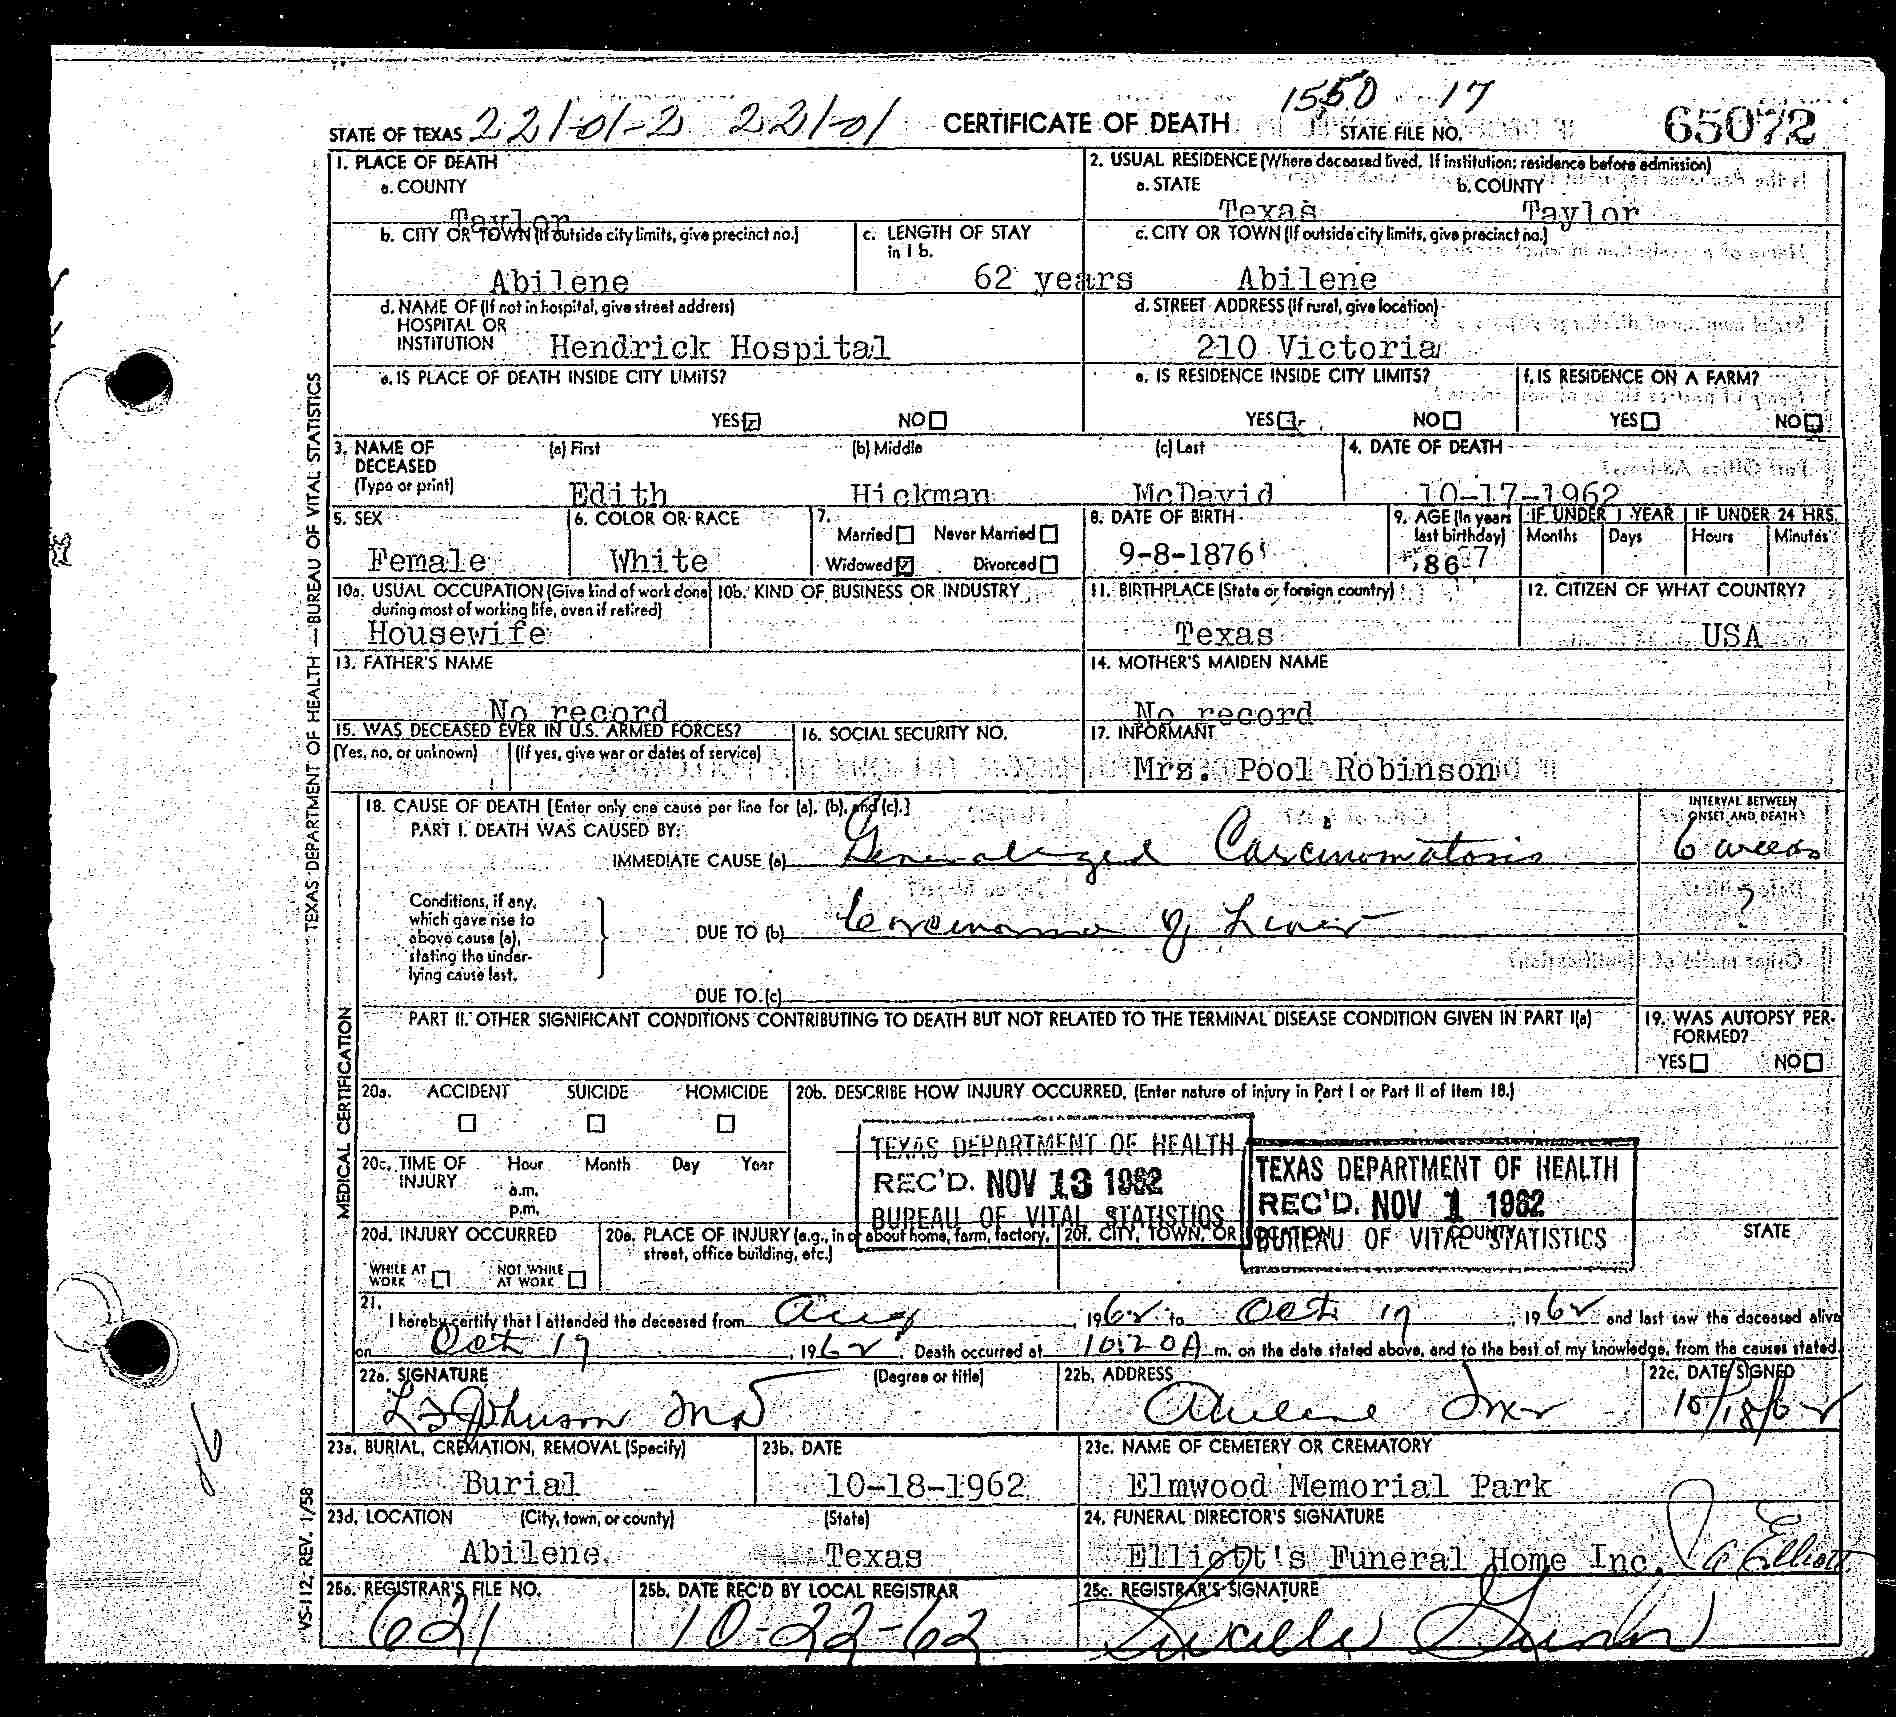 1550 17
STATE OF TEXAS 221-01-2 221-01 CERTIFICATE OF DEATH STATE FILE NO. 65072
1. PLACE OF DEATH
a. COUNTY
Taylor
2. USUAL RESIDENCE (Where deceased lived. If institution: residence before admission)
a. STATE b. COUNTY
Texas Taylor
b. CITY OR TOWN (If outside city limits, give precinct no.)
Abilene
c. LENGTH OF STAY
in 1 b.
62 years
c. CITY OR TOWN (If outside city limits, give precinct no.)
Abilene
d. NAME OF (If not in hospital, give street address)
HOSPITAL OR
INSTITUTION Hendrick Hospital
d. STREET ADDRESS (If rural, give location)
210 Victoria
e. IS PLACE OF DEATH INSIDE CITY LIMITS?
YES NO
e. IS RESIDENCE INSIDE CITY LIMITS?
YES NO
f. IS RESIDENCE ON A FARM?
YES NO
3. NAME OF
DECEASED
(Type or print)
(a) First (b) Middle (c) Last
Edith Hickman McDavid
4. DATE OF DEATH
10-17-1962
5. SEX
Female
6. COLOR OR RACE
White
7.
Married Never Married
Widowed Divorced
8. DATE OF BIRTH
9-8-1876
9. AGE (In years
last birthday)
86
IF UNDER 1 YEAR IF UNDER 24 HRS.
Months Days Hours Minutes
10a. USUAL OCCUPATION (Give kind of work done
during most of working life, even if retired)
Housewife
10b. KIND OF BUSINESS OR INDUSTRY
11. BIRTHPLACE (State or foreign country)
Texas
12. CITIZEN OF WHAT COUNTRY?
USA
13. FATHER'S NAME
No record
14. MOTHER'S MAIDEN NAME
No record
15. WAS DECEASED EVER IN U.S. ARMED FORCES?
(Yes, no, or unknown) (If yes, give war or dates of service)
16. SOCIAL SECURITY NO.
17. INFORMANT
Mrs. Pool Robinson
18. CAUSE OF DEATH [Enter only one cause per line for (a), (b), and (c).]
PART I. DEATH WAS CAUSED BY:
IMMEDIATE CAUSE (a) Generalized Carcinomatosis
INTERVAL BETWEEN
ONSET AND DEATH
6 weeks
Conditions, if any,
which gave rise to
above cause (a),
stating the under-
lying cause last.
DUE TO (b) Carcinoma of Liver
?
DUE TO (c)
PART II. OTHER SIGNIFICANT CONDITIONS CONTRIBUTING TO DEATH BUT NOT RELATED TO THE TERMINAL DISEASE CONDITION GIVEN IN PART I(a)
19. WAS AUTOPSY PER-
FORMED?
YES NO
20a. ACCIDENT SUICIDE HOMICIDE
20b. DESCRIBE HOW INJURY OCCURRED. (Enter nature of injury in Part I or Part II of item 18.)
20c. TIME OF
INJURY
Hour Month Day Year
a.m.
p.m.
TEXAS DEPARTMENT OF HEALTH
REC'D. NOV 13 1962
BUREAU OF VITAL STATISTICS
TEXAS DEPARTMENT OF HEALTH
REC'D. NOV 1 1962
BUREAU OF VITAL STATISTICS
20d. INJURY OCCURRED
WHILE AT
WORK
NOT WHILE
AT WORK
20e. PLACE OF INJURY (e.g., in or about home, farm, factory,
street, office building, etc.)
20f. CITY, TOWN, OR LOCATION COUNTY STATE
21.
I hereby certify that I attended the deceased from Aug, 1962 to Oct 17, 1962 and last saw the deceased alive
on Oct 17, 1962. Death occurred at 10:20A m. on the date stated above, and to the best of my knowledge, from the causes stated.
22a. SIGNATURE (Degree or title)
L J Johnson MD
22b. ADDRESS
Abilene Tex
22c. DATE SIGNED
10/18/62
23a. BURIAL, CREMATION, REMOVAL (Specify)
Burial
23b. DATE
10-18-1962
23c. NAME OF CEMETERY OR CREMATORY
Elmwood Memorial Park
23d. LOCATION (City, town, or county) (State)
Abilene, Texas
24. FUNERAL DIRECTOR'S SIGNATURE
Elliott's Funeral Home Inc. Elliott
25a. REGISTRAR'S FILE NO.
621
25b. DATE REC'D BY LOCAL REGISTRAR
10-22-62
25c. REGISTRAR'S SIGNATURE
TEXAS DEPARTMENT OF HEALTH — BUREAU OF VITAL STATISTICS
MEDICAL CERTIFICATION
VS-112, REV. 1/58